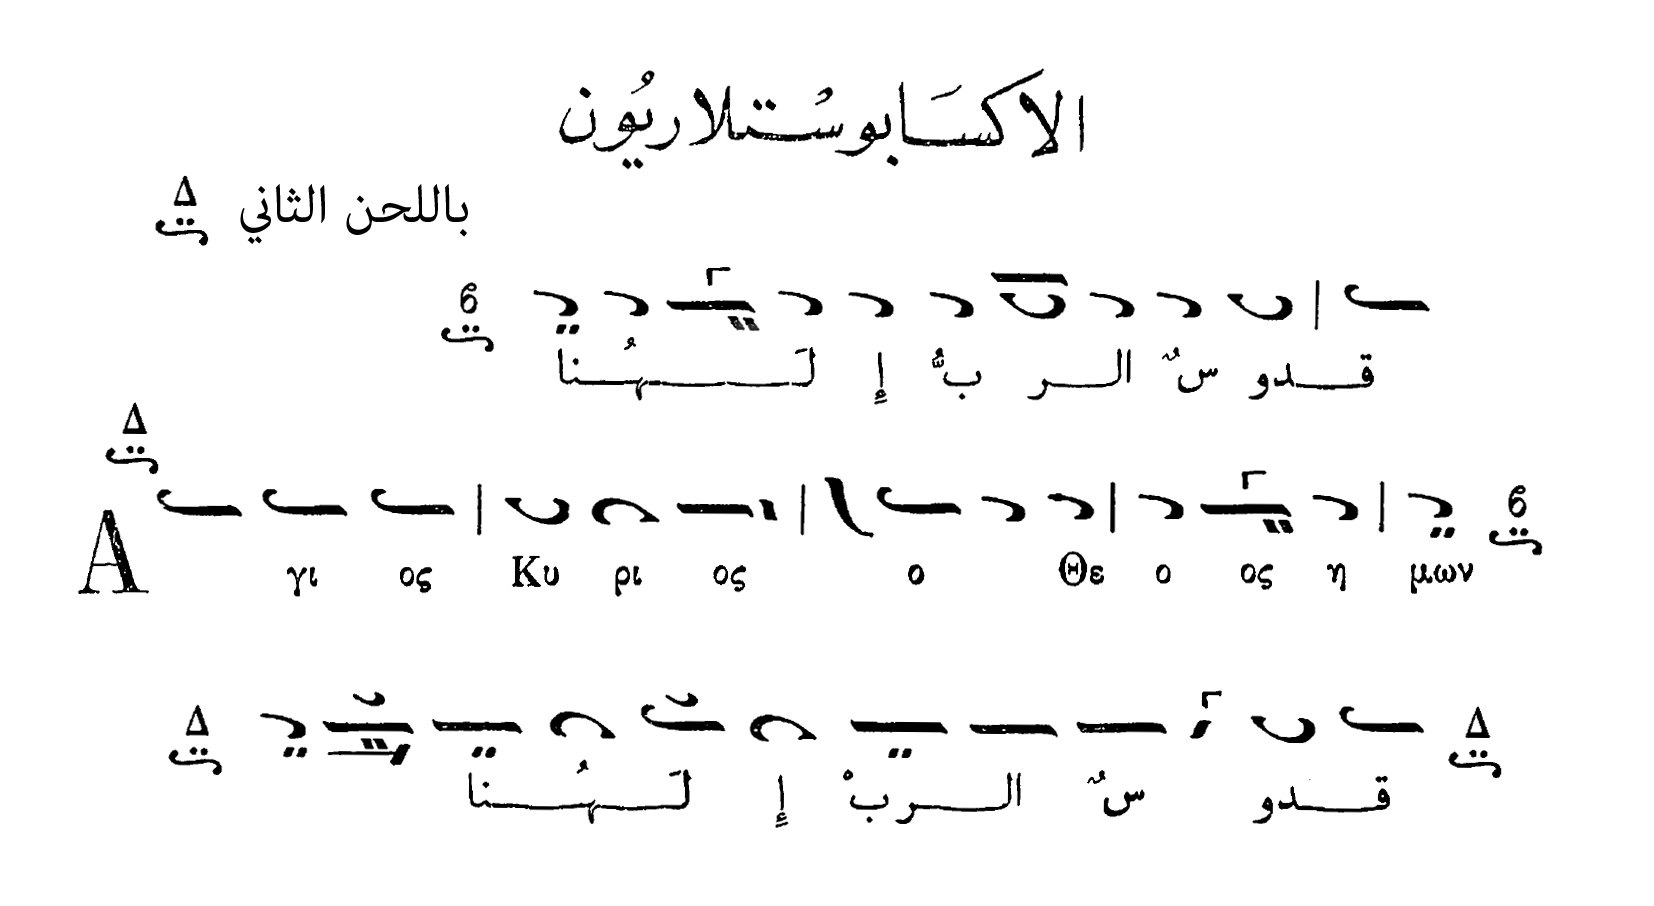 الاكسَابوسُتلاريُون
باللحن الثاني Δ
قـدو سٌ الـر بُّ إِ لَـهُـنا
Δ
Α γι ος Κυ ρι ος ο Θε ο ος η μων
Δ Δ
قـدو سٌ الـربْ إِ لَـهُـنا